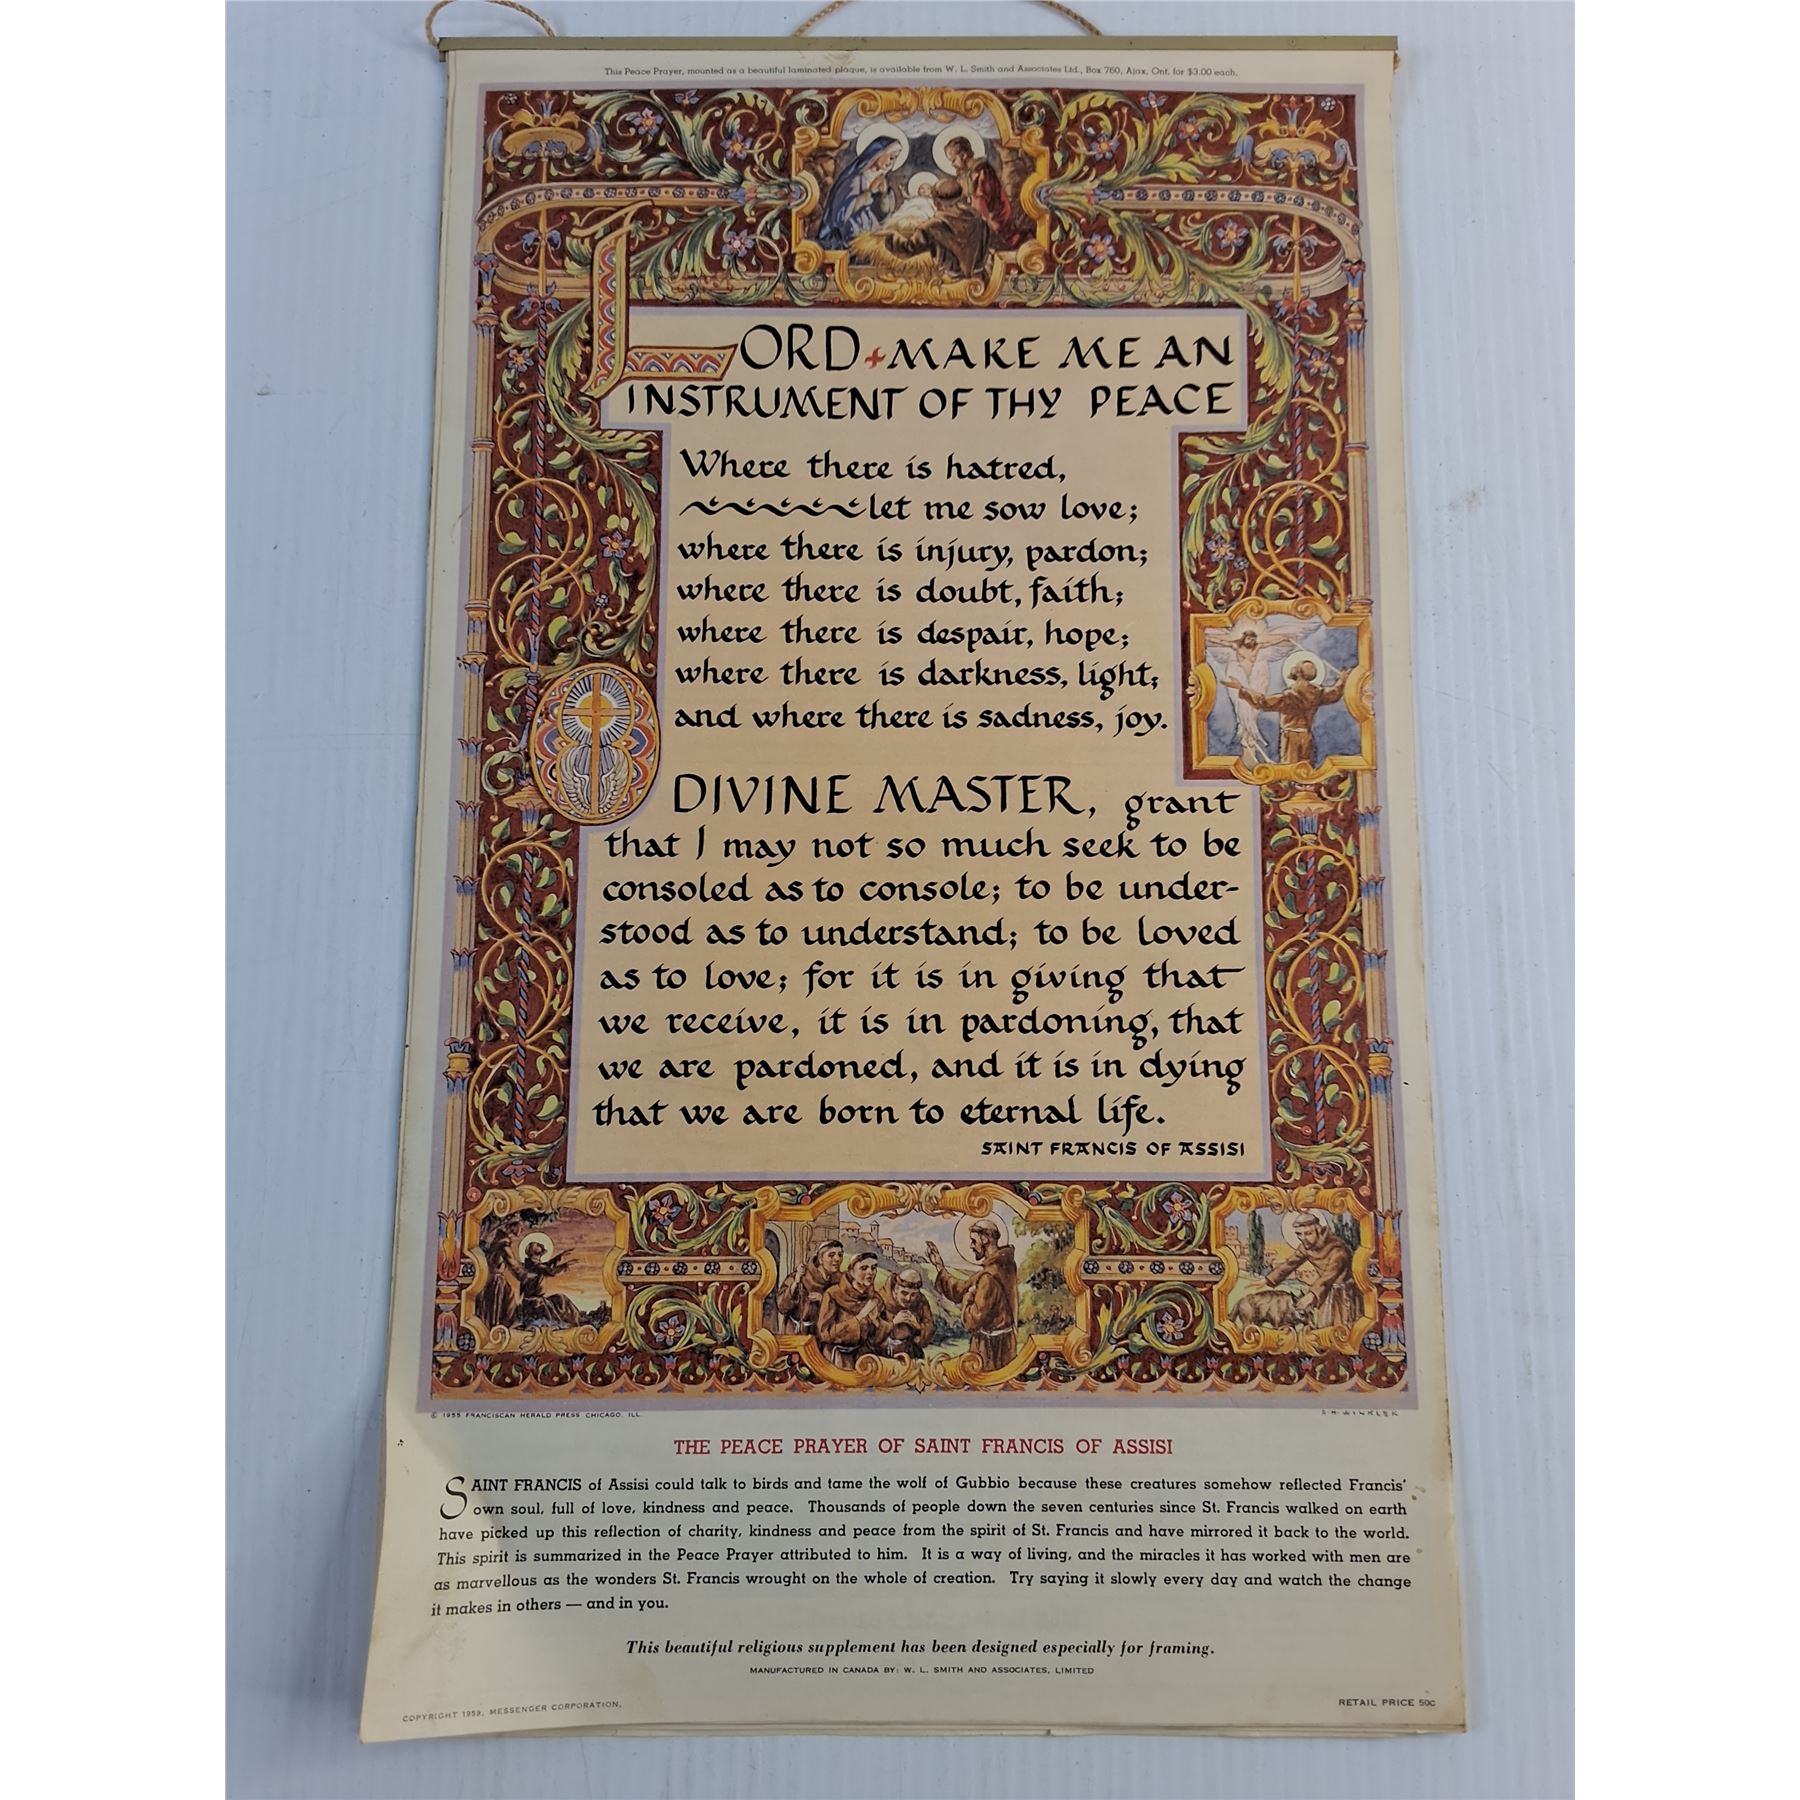 This Peace Prayer, mounted as a beautiful laminated plaque, is available from W. L. Smith and Associates Ltd., Box 760, Ajax, Ont. for $3.00 each.
LORD + MAKE ME AN
INSTRUMENT OF THY PEACE
Where there is hatred,
let me sow love;
where there is injury, pardon;
where there is doubt, faith;
where there is despair, hope;
where there is darkness, light;
and where there is sadness, joy.
DIVINE MASTER, grant
that I may not so much seek to be
consoled as to console; to be under-
stood as to understand; to be loved
as to love; for it is in giving that
we receive, it is in pardoning, that
we are pardoned, and it is in dying
that we are born to eternal life.
SAINT FRANCIS OF ASSISI
© 1955 FRANCISCAN HERALD PRESS CHICAGO, ILL.
WINKLER
THE PEACE PRAYER OF SAINT FRANCIS OF ASSISI
SAINT FRANCIS of Assisi could talk to birds and tame the wolf of Gubbio because these creatures somehow reflected Francis'
own soul, full of love, kindness and peace. Thousands of people down the seven centuries since St. Francis walked on earth
have picked up this reflection of charity, kindness and peace from the spirit of St. Francis and have mirrored it back to the world.
This spirit is summarized in the Peace Prayer attributed to him. It is a way of living, and the miracles it has worked with men are
as marvellous as the wonders St. Francis wrought on the whole of creation. Try saying it slowly every day and watch the change
it makes in others — and in you.
This beautiful religious supplement has been designed especially for framing.
MANUFACTURED IN CANADA BY: W. L. SMITH AND ASSOCIATES, LIMITED
COPYRIGHT 1959, MESSENGER CORPORATION.
RETAIL PRICE 50C